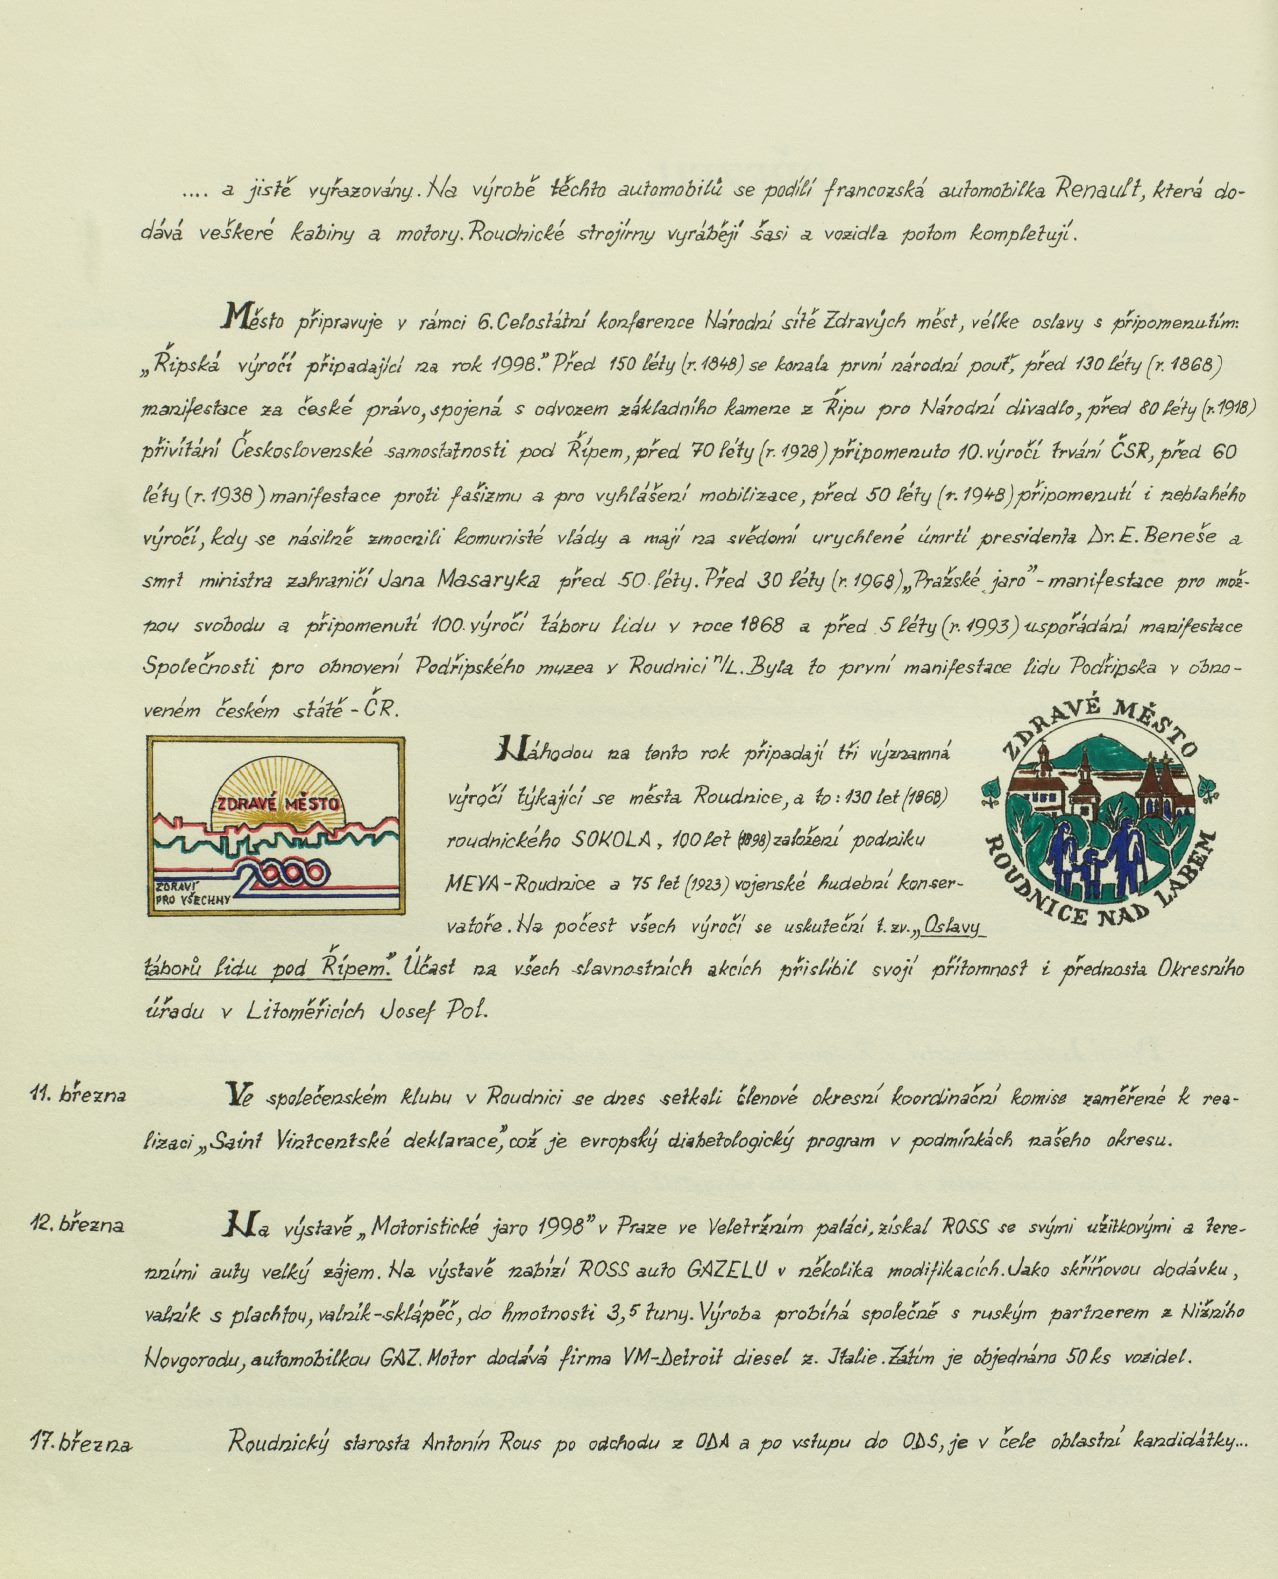 .... a jistě vyřazovány. Na výrobě těchto automobilů se podílí francozská automobilka Renault, která do-
dává veškeré kabiny a motory. Roudnické strojírny vyrábějí šasi a vozidla potom kompletují.
Město připravuje v rámci 6. Celostátní konference Národní sítě Zdravých měst, vélke oslavy s připomenutím:
„Řípská výročí připadající na rok 1998." Před 150 léty (r. 1848) se konala první národní pouť, před 130 léty (r. 1868)
manifestace za české právo, spojená s odvozem základního kamene z Řípu pro Národní divadlo, před 80 léty (r. 1918)
přivítání Československé samostatnosti pod Řípem, před 70 léty (r. 1928) připomenuto 10. výročí trvání ČSR, před 60
léty (r. 1938) manifestace proti fašizmu a pro vyhlášení mobilizace, před 50 léty (r. 1948) připomenutí i neblahého
výročí, kdy se násilně zmocnili komunisté vlády a mají na svědomí urychlené úmrtí presidenta Dr. E. Beneše a
smrt ministra zahraničí Jana Masaryka před 50. léty. Před 30 léty (r. 1968) „Pražské jaro" - manifestace pro mož-
nou svobodu a připomenutí 100. výročí táboru lidu v roce 1868 a před 5 léty (r. 1993) uspořádání manifestace
Společnosti pro obnovení Podřipského muzea v Roudnici n/L. Byla to první manifestace lidu Podřipska v obno-
veném českém státě - ČR.
ZDRAVÉ MĚSTO
2000
ZDRAVÍ
PRO VŠECHNY
Náhodou na tento rok připadají tři významná
výročí týkající se města Roudnice, a to: 130 let (1868)
roudnického SOKOLA, 100 let (1898) založení podniku
MEVA - Roudnice a 75 let (1923) vojenské hudební konser-
vatoře. Na počest všech výročí se uskuteční t. zv. „Oslavy
ZDRAVÉ MĚSTO
ROUDNICE NAD LABEM
táborů lidu pod Řípem." Účast na všech slavnostních akcích přislíbil svojí přítomnost i přednosta Okresního
úřadu v Litoměřicích Josef Pol.
11. března Ve společenském klubu v Roudnici se dnes setkali členové okresní koordinační komise zaměřené k rea-
lizaci „Saint Vintcentské deklarace", což je evropský diabetologický program v podmínkách našeho okresu.
12. března Na výstavě „Motoristické jaro 1998" v Praze ve Veletržním paláci, získal ROSS se svými užitkovými a tere-
nními auty velký zájem. Na výstavě nabízí ROSS auto GAZELU v několika modifikacích. Jako skříňovou dodávku,
valník s plachtou, valník-sklápěč, do hmotnosti 3,5 tuny. Výroba probíhá společně s ruským partnerem z Nižního
Novgorodu, automobilkou GAZ. Motor dodává firma VM-Detroit diesel z. Italie. Zatím je objednáno 50 ks vozidel.
17. března Roudnický starosta Antonín Rous po odchodu z ODA a po vstupu do ODS, je v čele oblastní kandidátky...